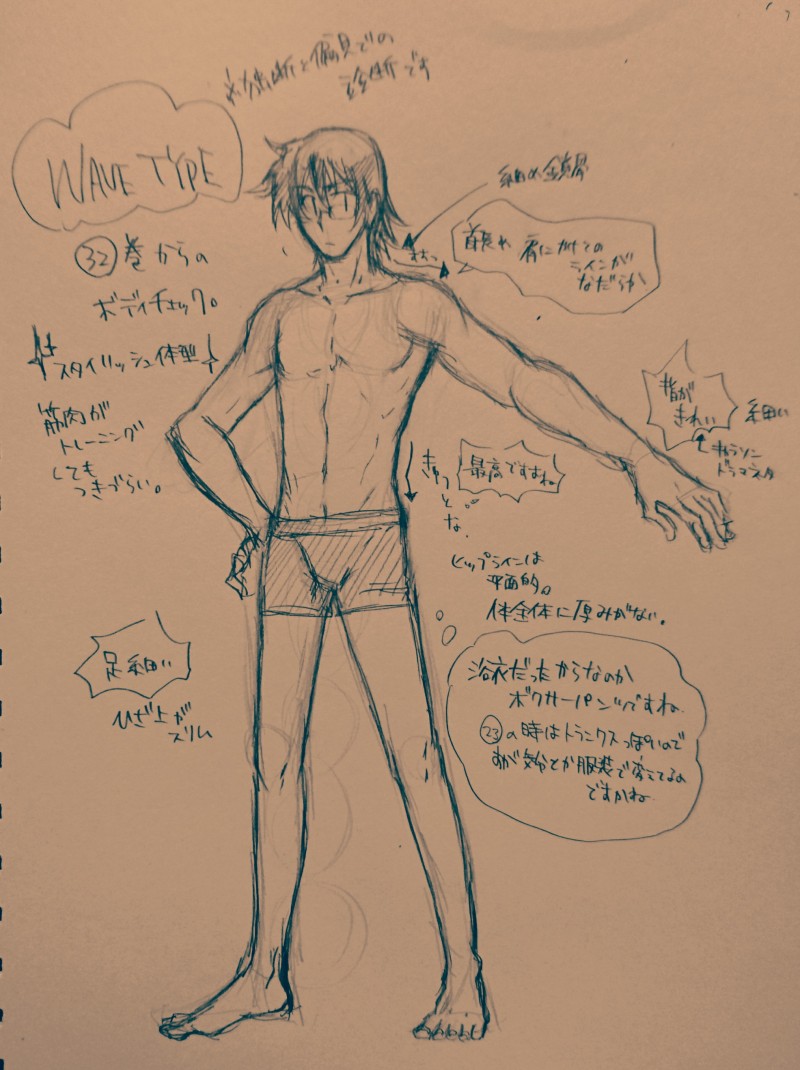 ※独断と偏見での
診断です
WAVE TYPE
㉜巻からの
ボディチェック。
スタイリッシュ体型
筋肉が
トレーニング
しても
つきづらい。
細め
首長め 肩にかけての
ラインが
なだらか
指が
きれい
細い
キャラソン
ドラマネタ
きゅっ
と
な。
最高ですね。
ヒップラインは
平面的。
体全体に厚みがない。
足細い
ひざ上が
スリム
浴衣だったからなのか
ボクサーパンツですね。
㉓の時はトランクスっぽいので
すが気分とか服装で変えてるの
ですかね